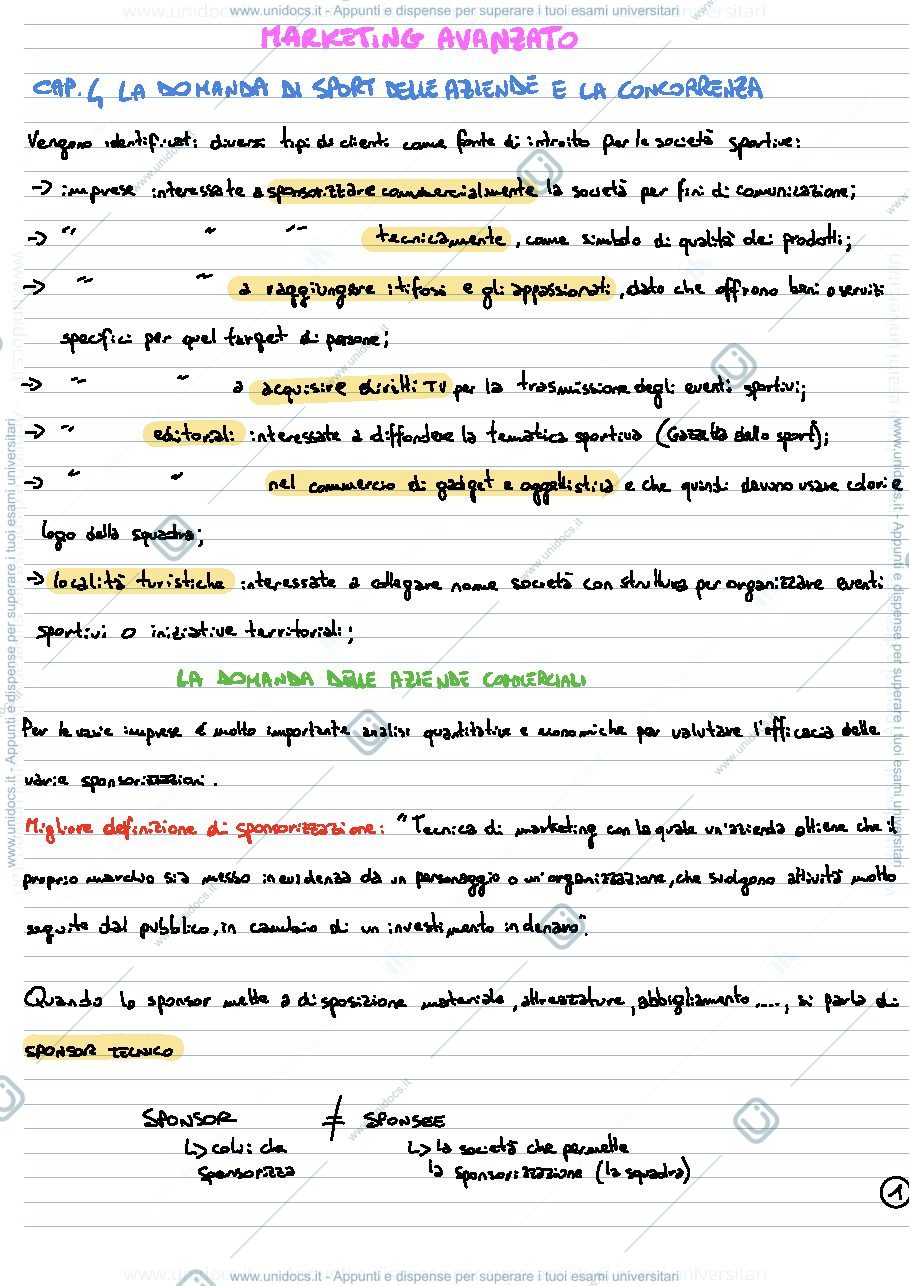 www.unidocs.it - Appunti e dispense per superare i tuoi esami universitari
MARKETING AVANZATO
CAP. 4 LA DOMANDA DI SPORT DELLE AZIENDE E LA CONCORRENZA
Vengono identificati diversi tipi di clienti come fonte di introito per le società sportive:
-> imprese interessate a sponsorizzare commercialmente la società per fini di comunicazione;
-> " " " tecnicamente, come simbolo di qualità dei prodotti;
-> " " a raggiungere i tifosi e gli appassionati, dato che offrono beni o servizi
specifici per quel target di persone;
-> " " a acquisire diritti TV per la trasmissione degli eventi sportivi;
-> " editoriali interessate a diffondere la tematica sportiva (Gazzetta dello sport);
-> " " nel commercio di gadget e oggettistica e che quindi devono usare colori e
logo della squadra;
-> località turistiche interessate a collegare nome società con struttura per organizzare eventi
sportivi o iniziative territoriali;
LA DOMANDA DELLE AZIENDE COMMERCIALI
Per le varie imprese è molto importante analisi quantitative e economiche per valutare l'efficacia delle
varie sponsorizzazioni.
Migliore definizione di sponsorizzazione: "Tecnica di marketing con la quale un'azienda ottiene che il
proprio marchio sia messo in evidenza da un personaggio o un'organizzazione, che svolgono attività molto
seguite dal pubblico, in cambio di un investimento in denaro".
Quando lo sponsor mette a disposizione materiale, attrezzature, abbigliamento...., si parla di
SPONSOR TECNICO
SPONSOR ≠ SPONSEE
↳ colui che ↳ la società che permette
sponsorizza la sponsorizzazione (la squadra)
1
www.unidocs.it - Appunti e dispense per superare i tuoi esami universitari